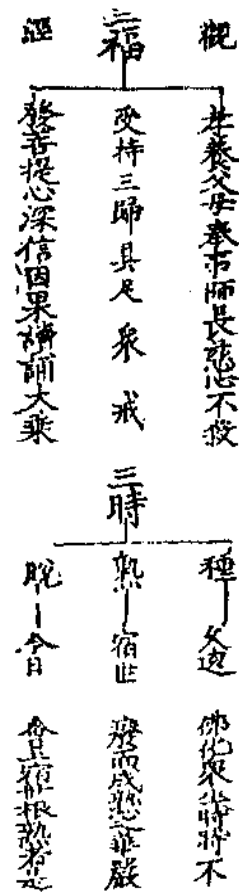 觀
三福
經
孝養父母奉事師長慈心不殺
受持三歸具足衆戒
發菩提心深信因果讀誦大乘
三時
種 久遠
熟 宿世
脫 今日
佛化衆生時將不
而成熟之華嚴
根熟者是